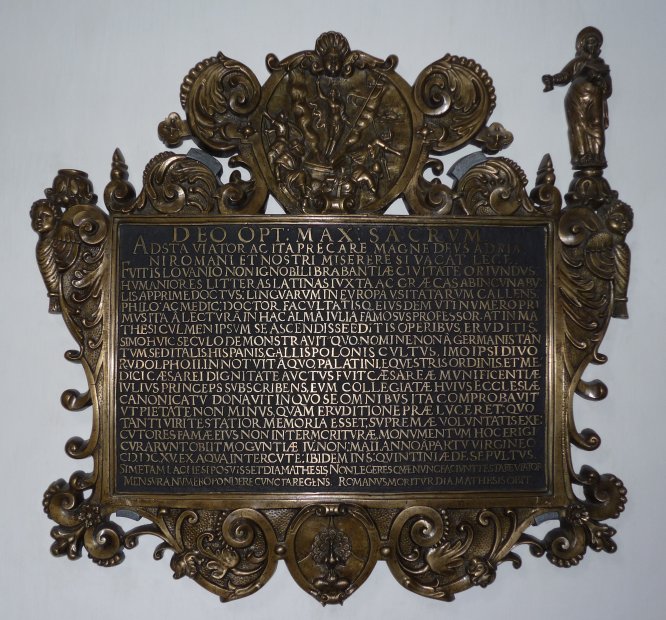 DEO OPT: MAX: SACRVM
ADSTA VIATOR AC ITA PRECARE MAGNE DEVS ADRIA
NI ROMANI ET NOSTRI MISERERE SI VACAT LEGE
FVIT IS LOVANIO NON IGNOBILI BRABANTIÆ CIVITATE ORIVNDVS
HVMANIORES LITTERAS LATINAS IVXTA AC GRÆCAS AB INCVNABV
LIS APPRIME DOCTVS, LINGVARVM IN EVROPA VSITATARVM CALLENS,
PHILO: AC MEDIC: DOCTOR FACVLTATISQ EIVSDEM VTI NVMERO PRI
MVS ITA LECTVRA IN HAC ALMA IVLIA FAMOSVS PROFESSOR, AT IN MA
THESI CVLMEN IPSVM SE ASCENDISSE EDITIS OPERIBVS, ERVDITIS
SIMO HVIC SECVLO DEMONSTRAVIT QVO NOMINE NON A GERMANIS TAN
TVM SED ITALIS HISPANIS, GALLIS POLONIS CVLTVS, IMO IPSI DIVO
RVDOLPHO II. INNOTVIT A QVO PALATINI, EQVESTRIS ORDINIS, ET ME
DICI CÆSAREI DIGNITATE AVCTVS FVIT CÆSAREÆ MVNIFICENTIÆ
IVLIVS PRINCEPS SVBSCRIBENS, EVM COLLEGIATÆ HVIVS ECCLESIÆ
CANONICATV DONAVIT IN QVO SE OMNIBVS ITA COMPROBAVIT
VT PIETATE NON MINVS, QVAM ERVDITIONE PRÆLVCERET: QVO
TANTI VIRI TESTATIOR MEMORIA ESSET, SVPREMÆ VOLVNTATIS EXE
CVTORES FAMÆ EIVS NON INTERMORITVRÆ, MONVMENTVM HOC ERIGI
CVRARVNT OBIIT MOGVNTIÆ IV. NON: MAII. ANNO A PARTV VIRGINEO
EX AQVA INTERCVTE: IBIDEM IN S. QVINTINI ÆDE SEPVLTVS.
SI METAM LACHESI POSVISSET DIA MATHESIS NON LEGERES QVÆ NVNC FACIVNT TE STARE VIATOR
MENSVRA NVMERO PONDERE CVNCTA REGENS. ROMANVS MORITVR DIA MATHESIS OBIT